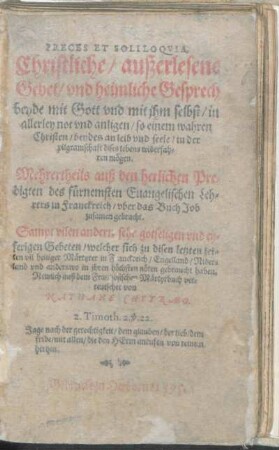 PRECES ET SOLILOQUIA,
Christliche/ außerlesene
Gebet/ vnd heimliche Gesprech
beyde mit Gott vnd mit ihm selbst/ in
allerley not vnd anligen/ so einem wahren
Christen/ beydes an leib vnd seele/ in der
pilgramschafft dises lebens widerfah-
ren mögen.
Mehrertheils auß den herlichen Pre-
digten des fürnemsten Euangelischen Leh-
rers in Franckreich/ vber das Buch Job
zusamen gebracht.
Sampt vilen andern, sehr gotseligen vnd ey-
ferigen Gebeten/ welcher sich in disen letzten zei-
ten vil heiliger Märtyrer in Franckreich/ Engelland/
vnd anderswo in ihren höchsten nöten gebraucht haben.
Newlich auß dem Märtyrbuch ver-
von
NATHANE
2. Timoth. 2. v. 22.
Jage nach der gerechtigkeit/ dem glauben/ der lieb/ dem
fride/ mit allen/ die den HErrn anrufen von reinem
hertzen.